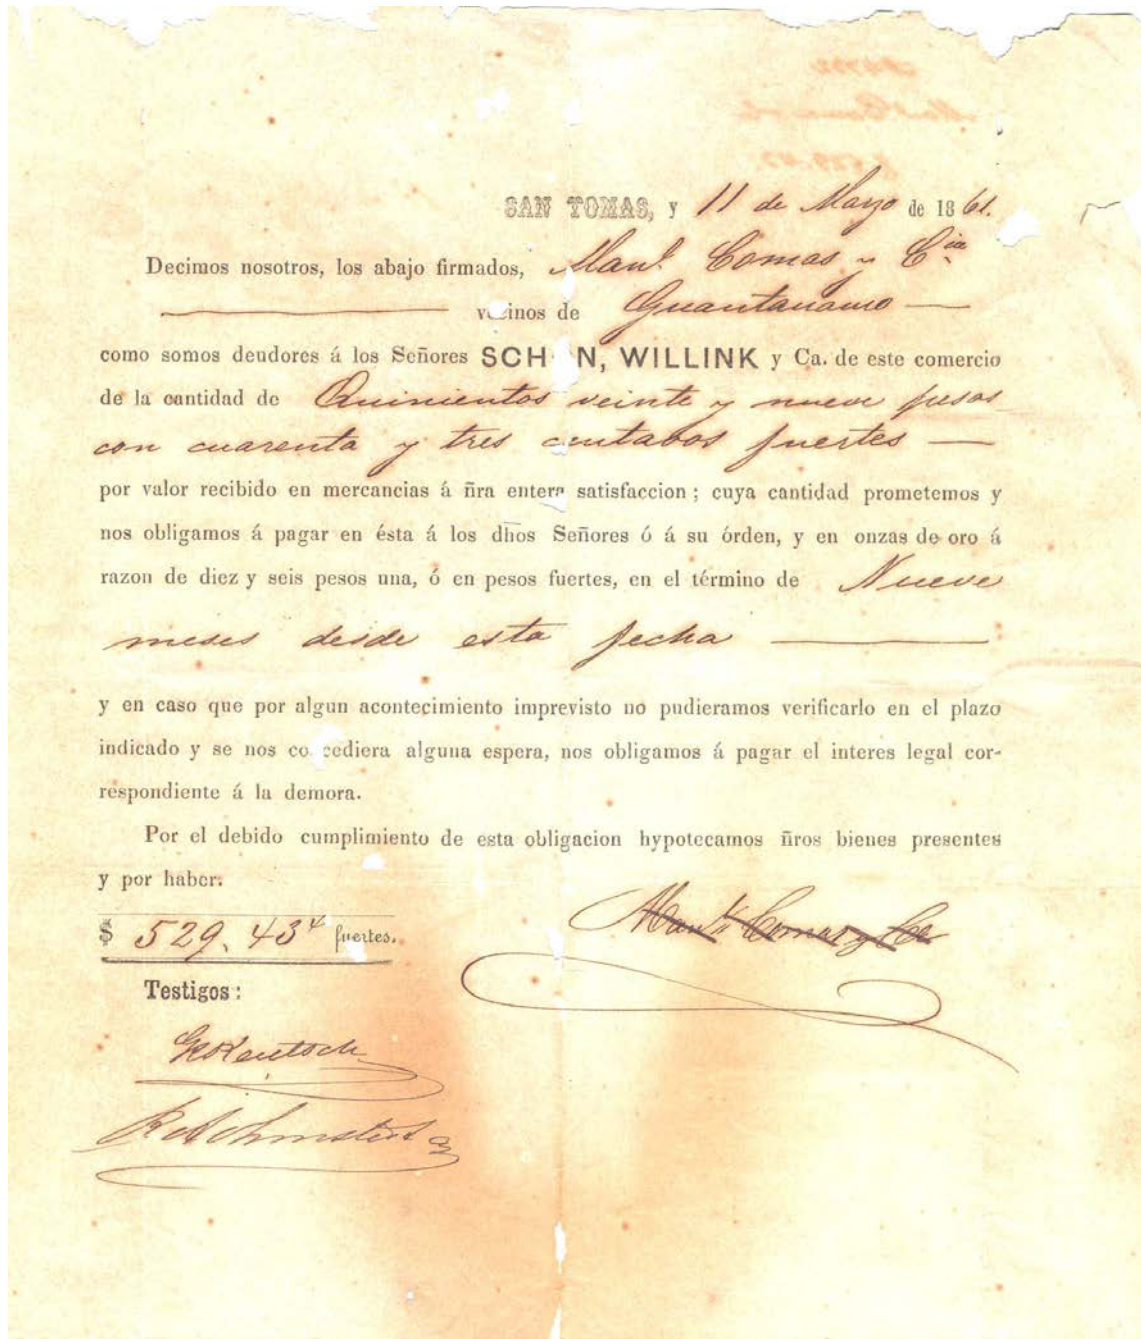 SAN TOMAS, y 11 de Marzo de 1861.
Decimos nosotros, los abajo firmados, Manl. Comas y Cia
vecinos de Guantanamo
como somos deudores á los Señores SCHON, WILLINK y Ca. de este comercio
de la cantidad de Quinientos veinte y nueve pesos
con cuarenta y tres centavos fuertes
por valor recibido en mercancias á ñra entera satisfaccion; cuya cantidad prometemos y
nos obligamos á pagar en ésta á los dhos Señores ó á su órden, y en onzas de oro á
razon de diez y seis pesos una, ó en pesos fuertes, en el término de Nueve
meses desde esta fecha
y en caso que por algun acontecimiento imprevisto no pudieramos verificarlo en el plazo
indicado y se nos concediera alguna espera, nos obligamos á pagar el interes legal cor-
respondiente á la demora.
Por el debido cumplimiento de esta obligacion hypotecamos ñros bienes presentes
y por haber.
$ 529.43 fuertes.
Manl. Comas y Ca
Testigos: